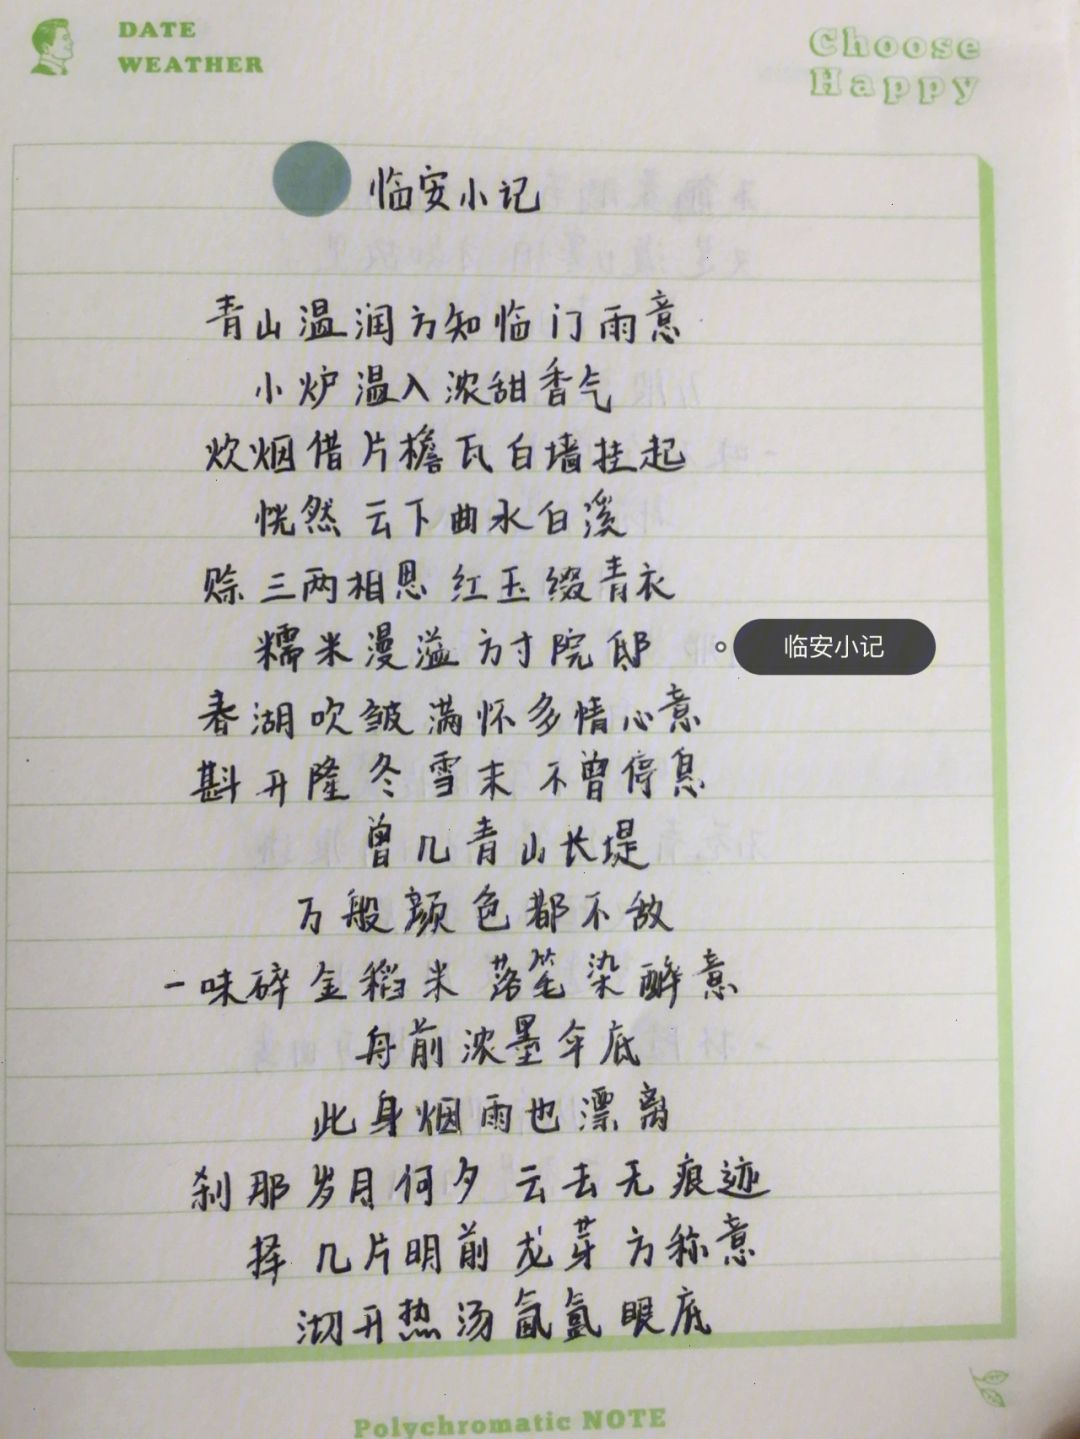 DATE
WEATHER
Choose
Happy
临安小记
青山温润方知临门雨意
小炉温入浓甜香气
炊烟借片檐瓦白墙挂起
恍然云下曲水白溪
赊三两相思 红玉缀青衣
糯米漫溢方寸院邸
临安小记
春湖吹皱满怀多情心意
斟开隆冬雪末不曾停息
曾几青山长堤
万般颜色都不敌
一味碎金稻米 落笔染醉意
舟前浓墨伞底
此身烟雨也漂离
刹那岁月何夕 云去无痕迹
择几片明前龙芽方称意
沏开热汤氤氲眼底
Polychromatic NOTE